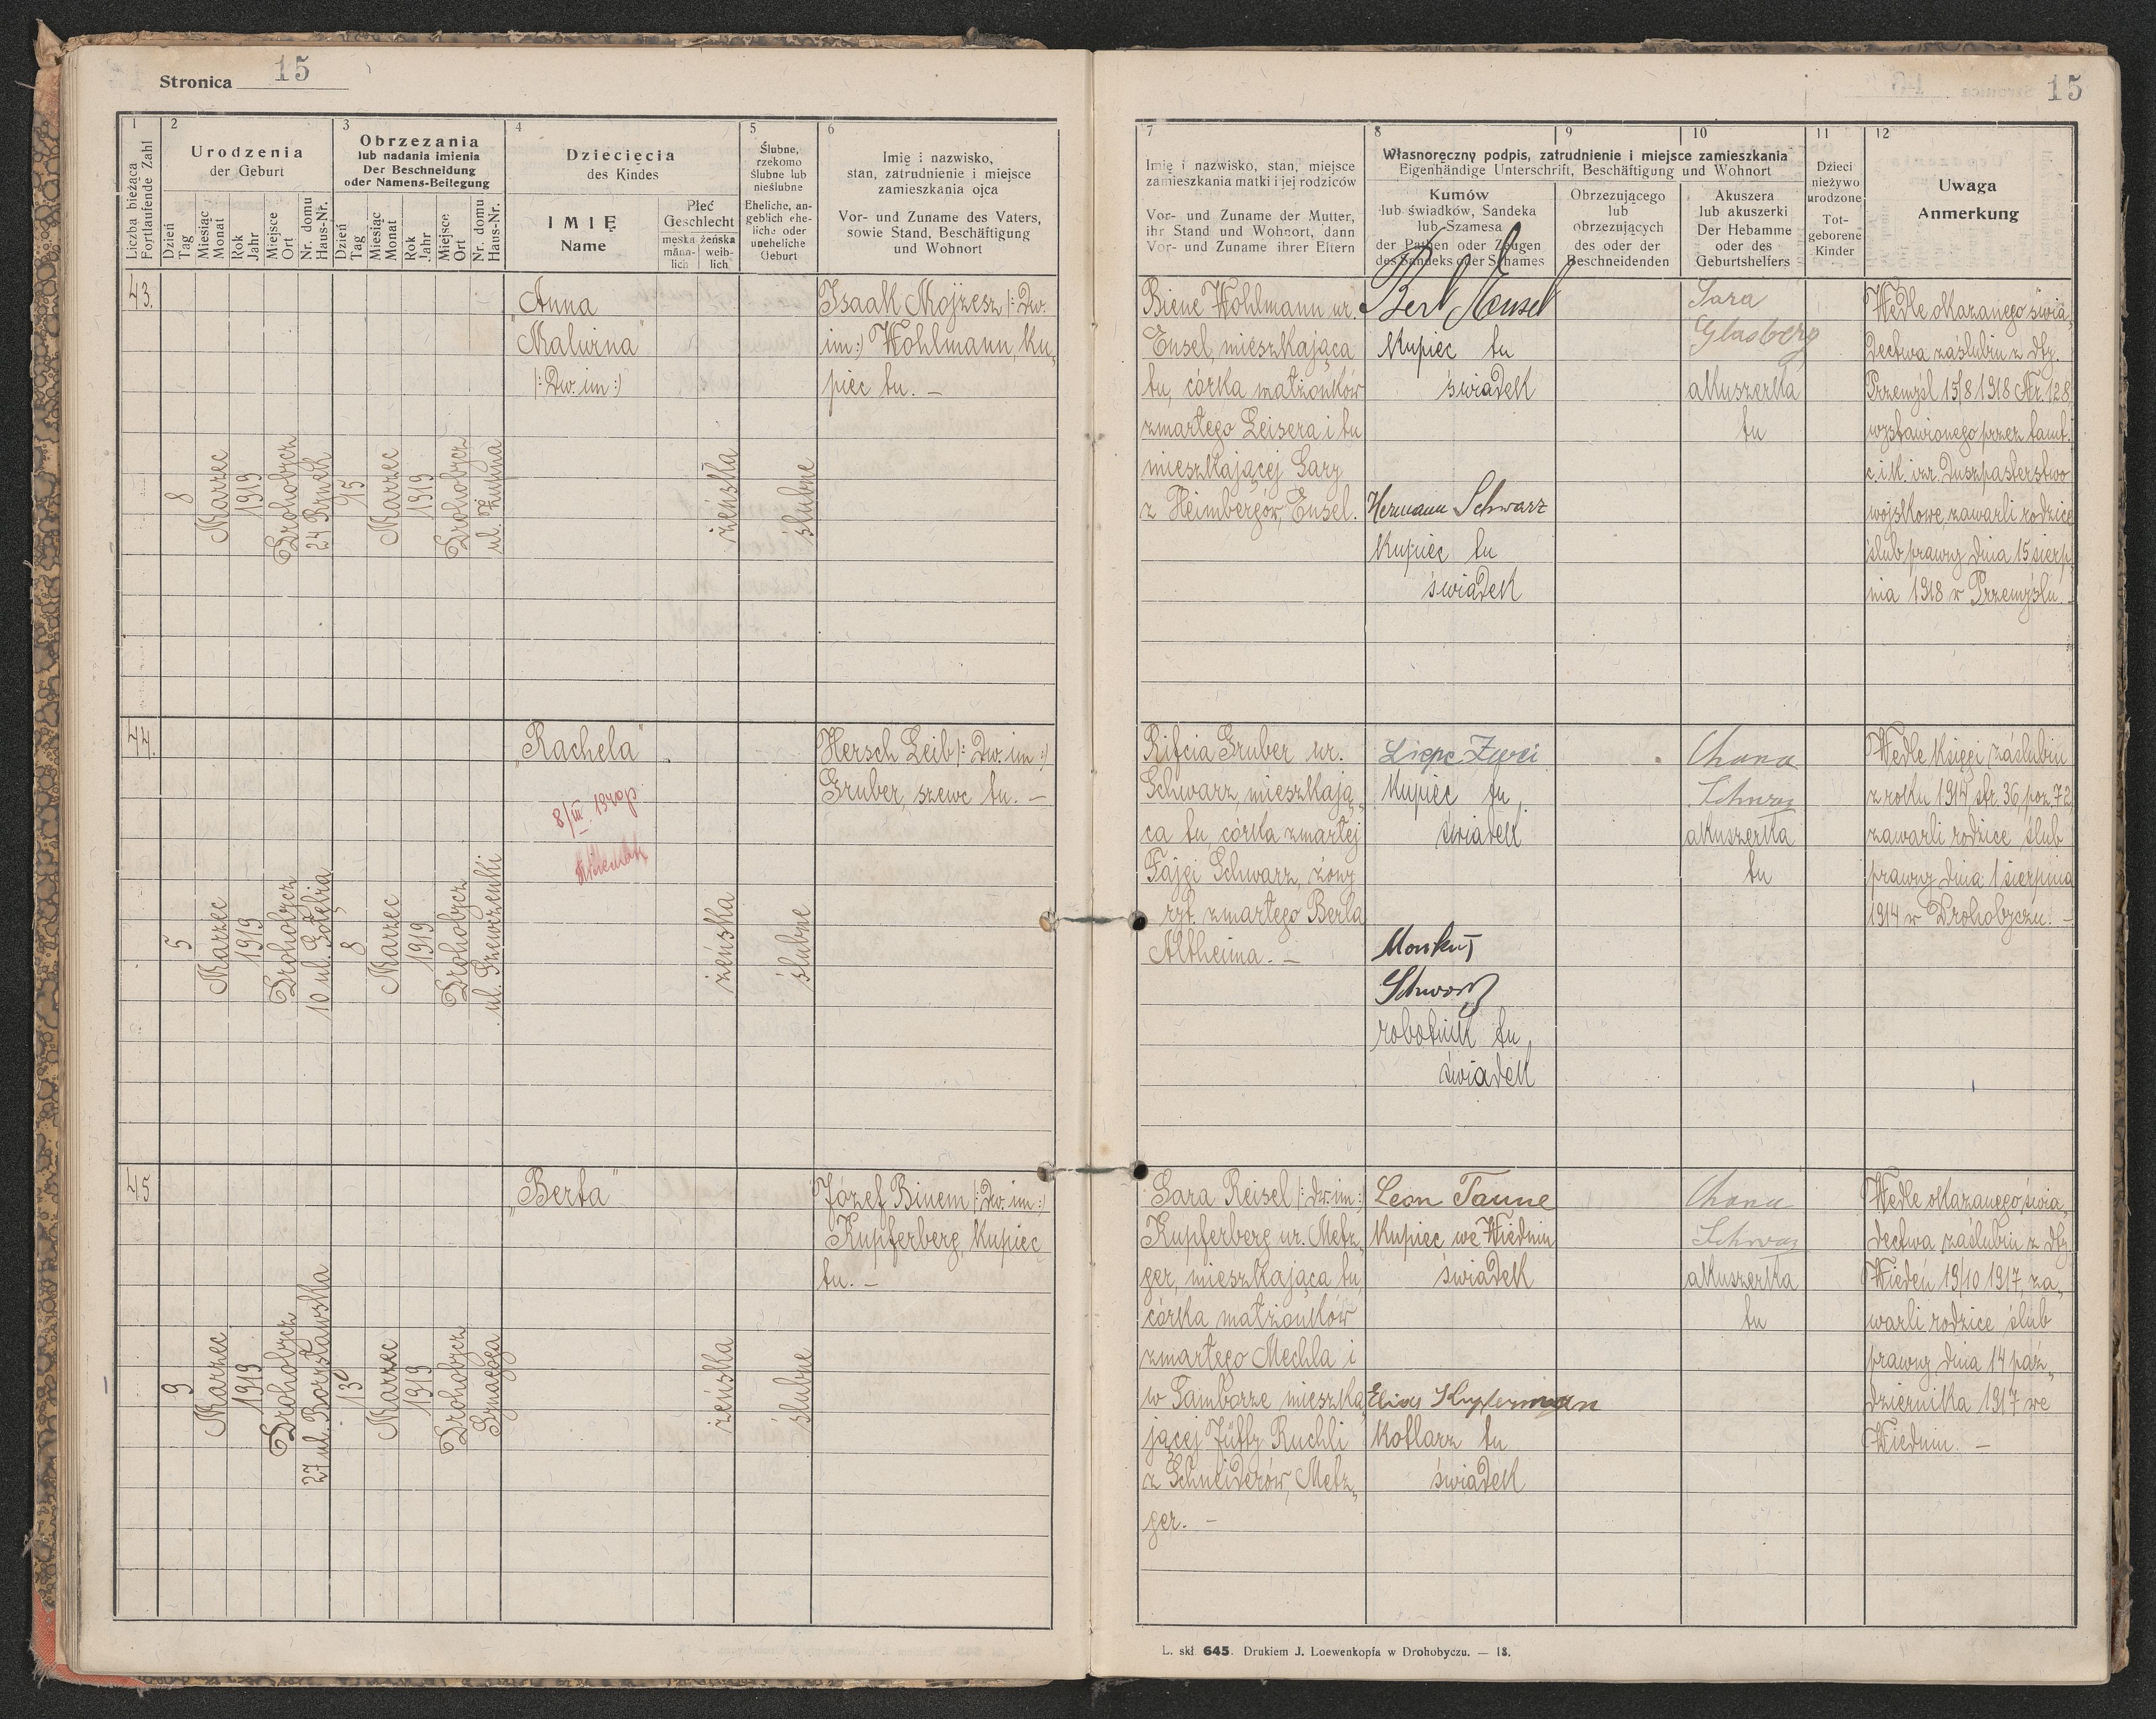 Stronica 15
15
1
2
3
4
5
6
Liczba bieżąca
Fortlaufende Zahl
Urodzenia
der Geburt
Obrzezania
lub nadania imienia
Der Beschneidung
oder Namens-Beilegung
Dziecięcia
des Kindes
Ślubne,
rzekomo
ślubne lub
nieślubne
Eheliche, an-
geblich ehe-
liche oder
uneheliche
Geburt
Imię i nazwisko,
stan, zatrudnienie i miejsce
zamieszkania ojca
Vor- und Zuname des Vaters,
sowie Stand, Beschäftigung
und Wohnort
Dzień
Tag
Miesiąc
Monat
Rok
Jahr
Miejsce
Ort
Nr. domu
Haus-Nr.
Dzień
Tag
Miesiąc
Monat
Rok
Jahr
Miejsce
Ort
Nr. domu
Haus-Nr.
IMIĘ
Name
Płeć
Geschlecht
męska
männ-
lich
żeńska
weib-
lich
7
8
9
10
11
12
Imię i nazwisko, stan, miejsce
zamieszkania matki i jej rodziców
Vor- und Zuname der Mutter,
ihr Stand und Wohnort, dann
Vor- und Zuname ihrer Eltern
Własnoręczny podpis, zatrudnienie i miejsce zamieszkania
Eigenhändige Unterschrift, Beschäftigung und Wohnort
Kumów
lub świadków, Sandeka
lub Szamesa
der Pathen oder Zeugen
des Sandeks oder Schames
Obrzezującego
lub
obrzezujących
des oder der
Beschneidenden
Akuszera
lub akuszerki
Der Hebamme
oder des
Geburtshelfers
Dzieci
nieżywo
urodzone
Tot-
geborene
Kinder
Uwaga
Anmerkung
43.
8
Marzec
1919
Drohobycz
15
Marzec
1919
Drohobycz
"Anna
Malwina"
/: Dw. im :/
żeńska
ślubne
Isaak Mojżesz /: Dw.
im :/ Wohlmann, ku„
piec tu. —
Biene Wohlmann ur.
Ensel, mieszkająca
tu, córka małżonków
zmarłego Leisera i tu
mieszkającej Sary
z Heimbergów, Ensel.
Kupiec tu
świadek
Hermann Schwarz
Kupiec tu
świadek
Sara
Glasberg
akuszerka
tu
Wedle okazanego świa„
dectwa zaślubin z dtą.
Przemyśl 15/8 1918 Nr. 128
wystawionego przez tamt.
c. i k. izr. Duszpasterstwo
wojskowe, zawarli rodzice
ślub prawny dnia 15 sierp„
nia 1918 w Przemyślu. —
44.
5
Marzec
1919
Drohobycz
10 ul. Gołębia
8
Marzec
1919
Drohobycz
ul. Szewczenki
"Rachela"
8/III
żeńska
ślubne
Hersch Leib /: Dw. im :/
Gruber, szewc tu. —
Rifcia Gruber ur.
Schwarz, mieszkają„
ca tu, córka zmarłej
Fajgi Schwarz, żony
ryt. zmarłego Berla
Altheima. —
Kupiec tu,
świadek
Schwarz
robotnik tu,
świadek
Chana
Schwarz
akuszerka
tu
Wedle księgi zaślubin
z roku 1914 str. 36 poz. 72,
zawarli rodzice ślub
prawny dnia 1 sierpnia
1914 w Drohobyczu. —
45
9
Marzec
1919
Drohobycz
27 ul. Borysławska
13
Marzec
1919
Drohobycz
Synagoga
"Berta"
żeńska
ślubne
Józef Binem /: Dw. im :/
Kupferberg, Kupiec
tu. —
Sara Reisel /: Dw. im :/
Kupferberg ur. Metz„
ger, mieszkająca tu,
córka małżonków
zmarłego Mechla i
w Samborze mieszka„
jącej Jütty Ruchli
z Schneiderów, Metz„
ger. —
Leon Tanne
Kupiec we Wiedniu
świadek
Elias Kupfermann
Kotlarz tu
świadek
Chana
Schwarz
akuszerka
tu
Wedle okazanego świa„
dectwa zaślubin z dtą.
Wiedeń 19/10 1917, za„
warli rodzice ślub
prawny dnia 14 paź„
dziernika 1917 we
Wiedniu. —
L. skł. 645. Drukiem J. Loewenkopfa w Drohobyczu. — 18.